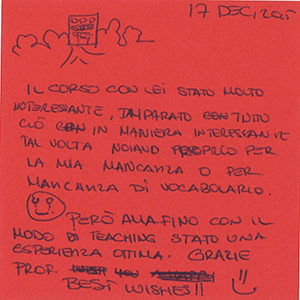 17 DEC, 2015
IL CORSO CON LEI STATO MOLTO
INTERESSANTE, IMPARATO CON TUTTO
CIÒ IN MANIERA INTERESSANTE
TAL VOLTA NOIANO PROPRIO PER
LA MIA MANCANZA O PER
MANCANZA DI VOCABOLARIO.
PERÒ ALLA FINO CON IL
MODO DI TEACHING STATO UNA
ESPERIENZA OTTIMA. GRAZIE
PROF.
BEST WISHES!!